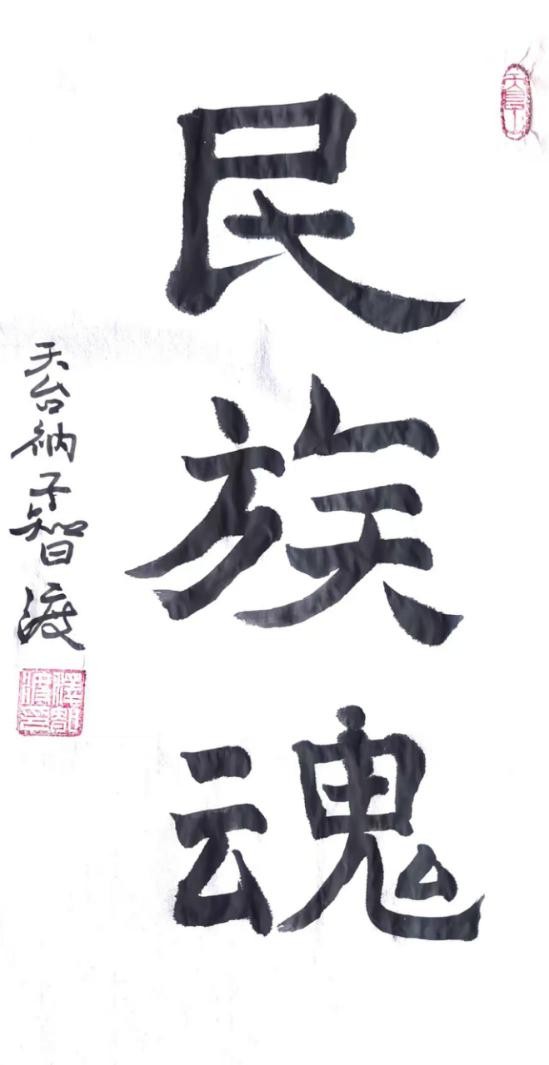 民族魂
天台衲子智渡